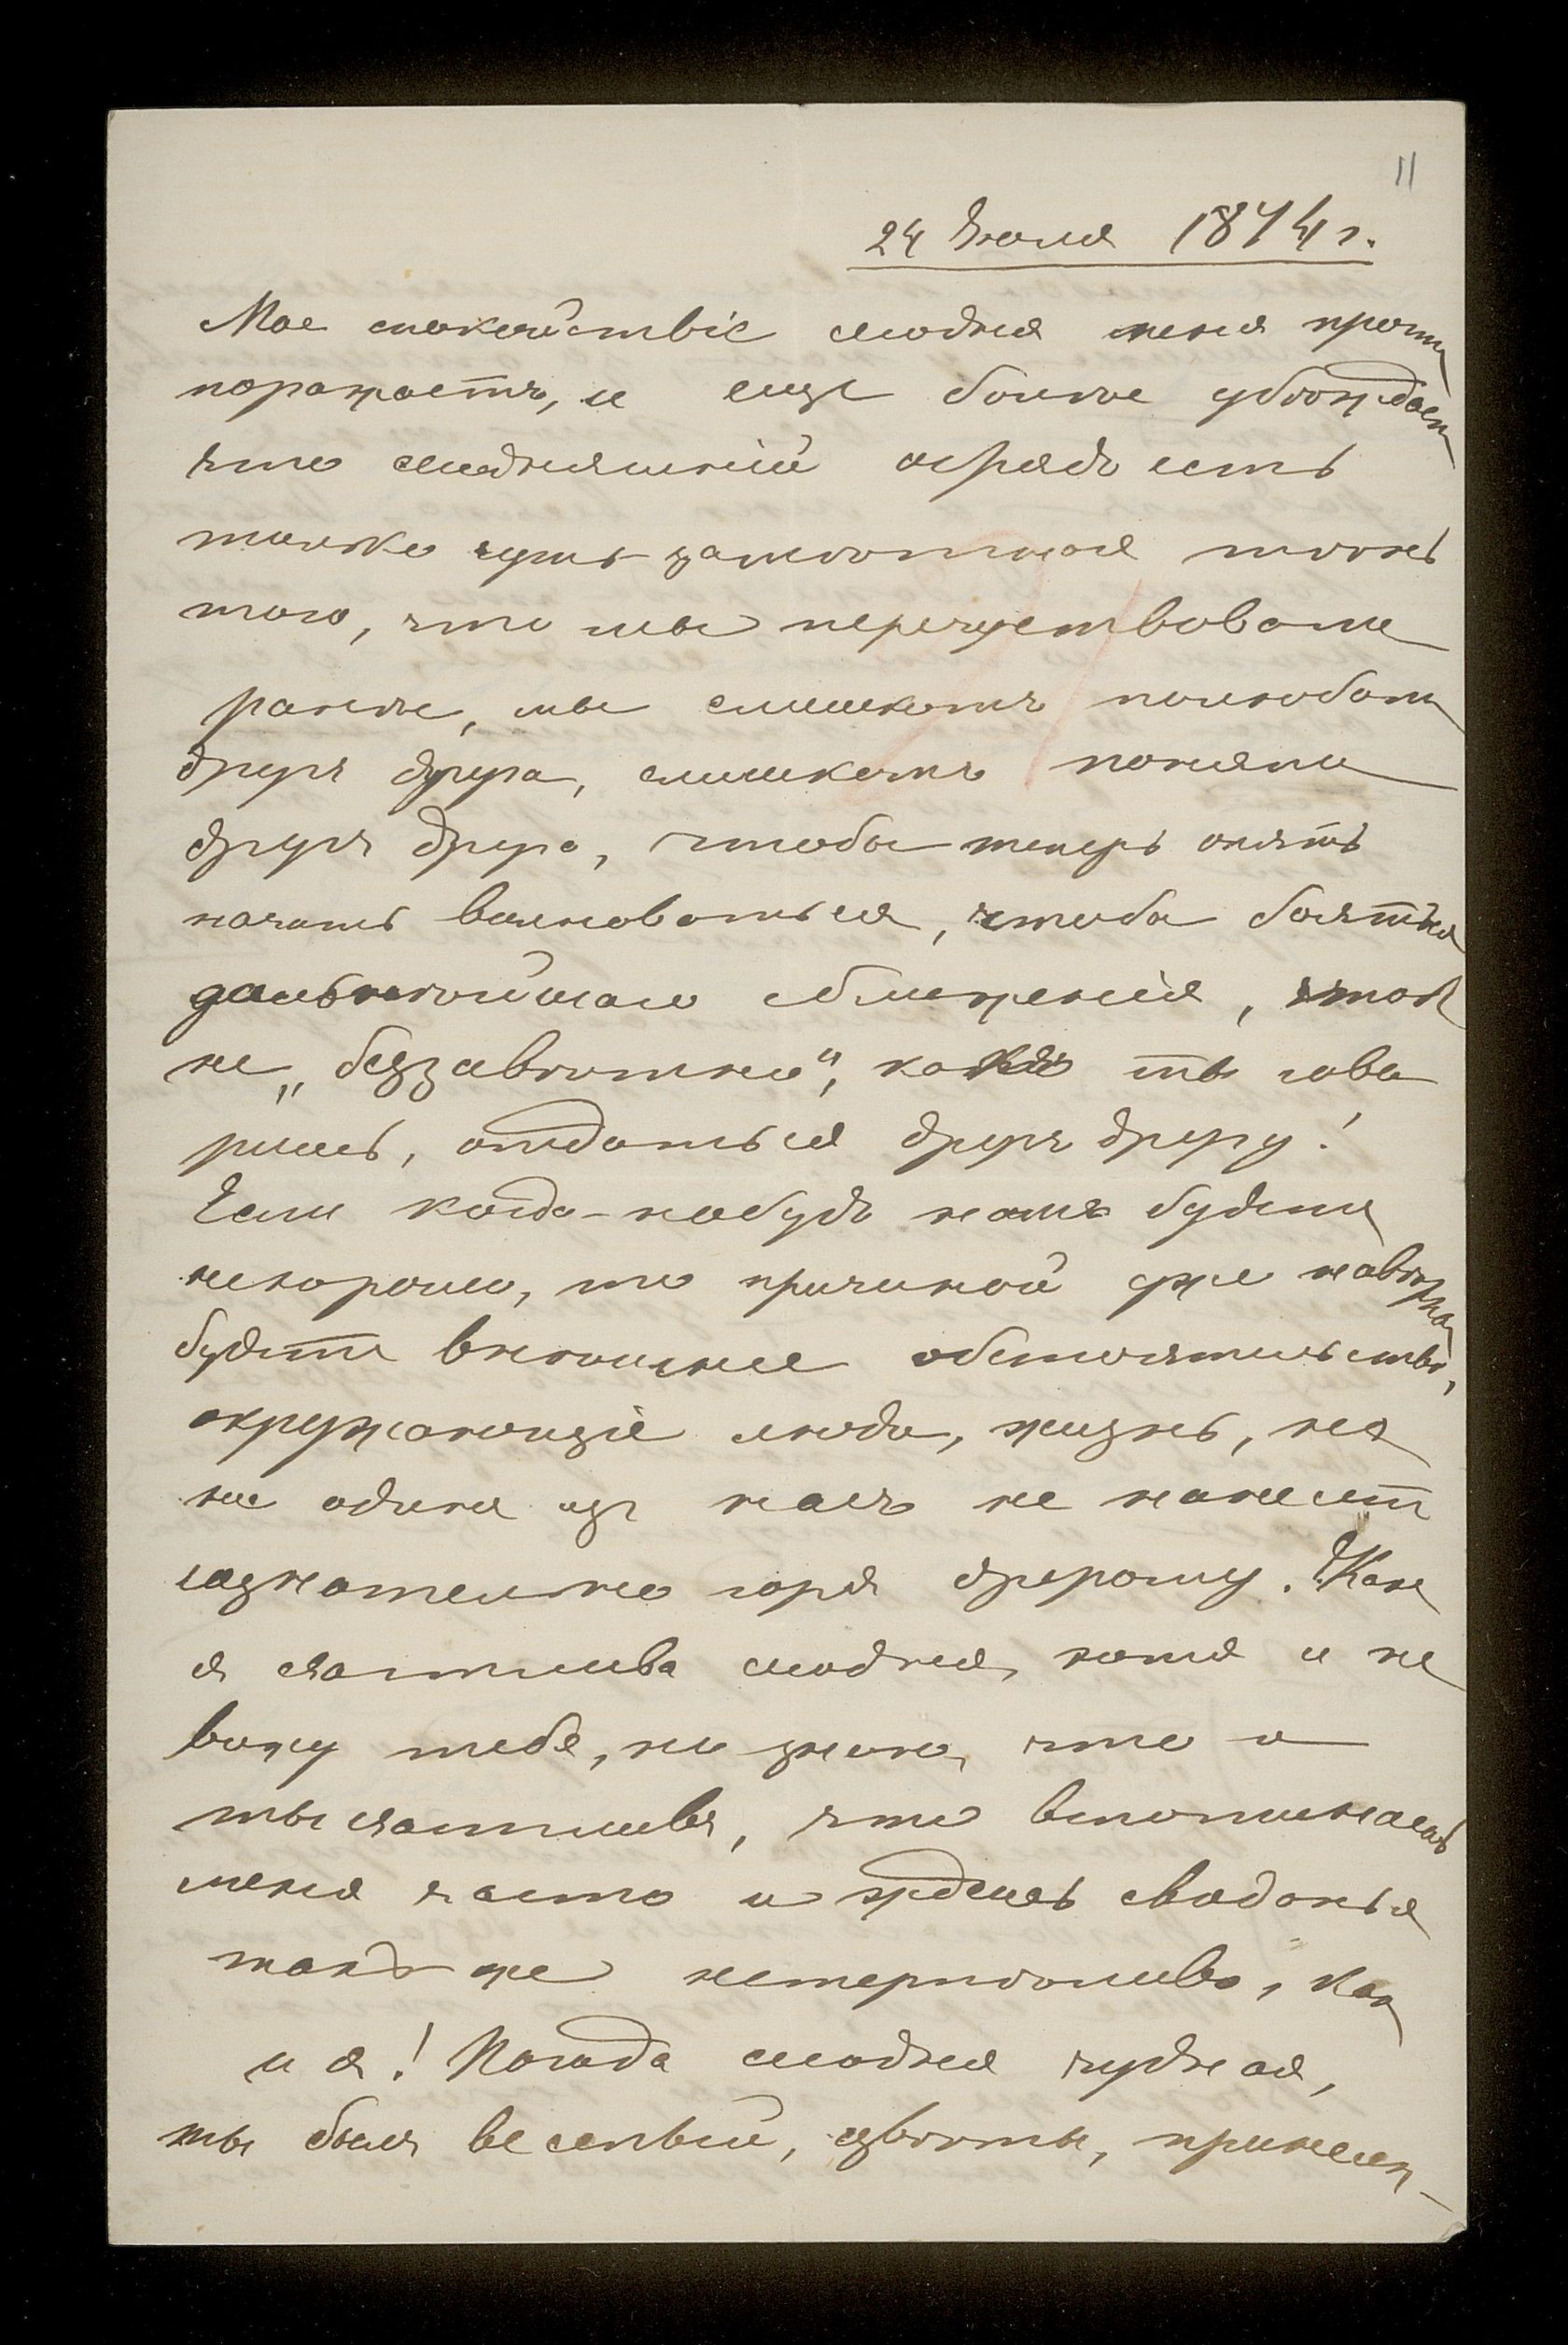 11
24 Июля 1874 г.
Мое спокойствіе сегодня меня прямо
поражаетъ, и еще болѣе убѣждаетъ
что сегодняшній обрядъ есть
только чуть замѣтная тѣнь
того, что мы перечувствовали
ранѣе, мы слишкомъ полюбили
другъ друга, слишкомъ поняли
другъ друга, чтобы теперь опять
начать волноваться, чтобы бояться
дальнѣйшаго сближенія, чтобъ
не „беззавѣтно“, какъ ты гово
ришь, отдаться другъ другу!
Если когда-нибудь намъ будетъ
нехорошо, то причиной уже навѣрно
будутъ внѣшнее обстоятельства,
окружающіе люди, жизнь, но
ни одинъ изъ насъ не нанесетъ
сознательно горя другому. Какъ
я счастлива сегодня, хотя и не
вижу тебя, но знаю, что и
ты счастливъ, что вспоминаешь
меня часто и ждешь свиданья
такъ же нетерпѣливо, какъ
и я! Погода сегодня чудная,
ты былъ веселый, цвѣты, принесен-